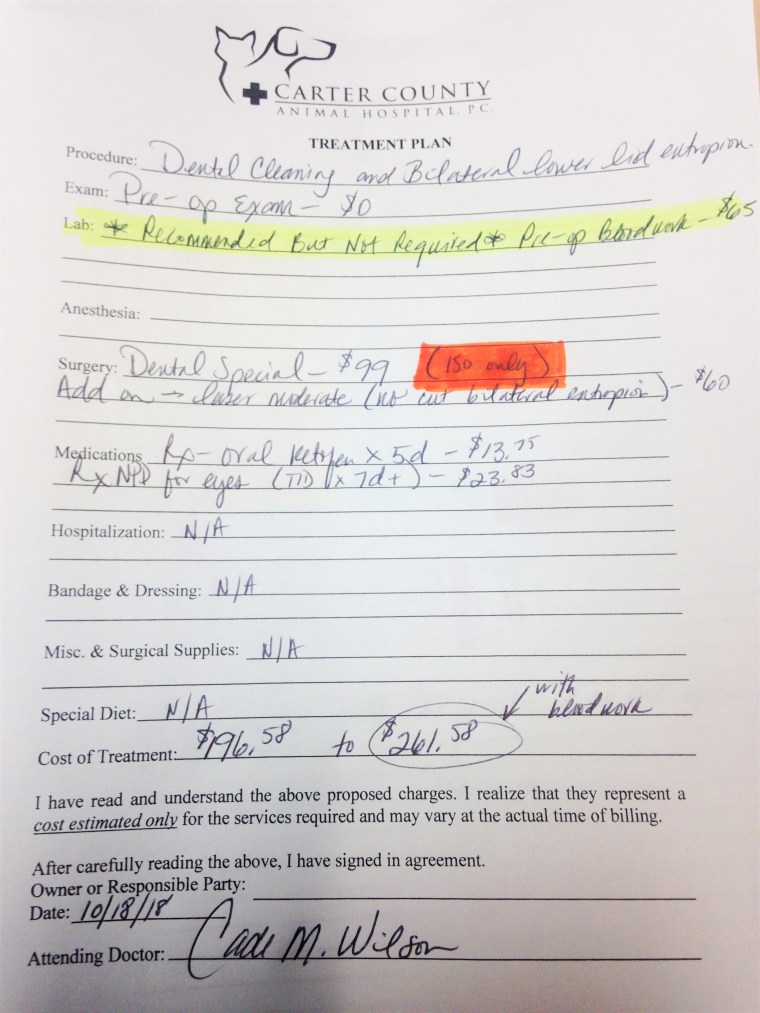 CARTER COUNTY
ANIMAL HOSPITAL, P.C.
TREATMENT PLAN
Procedure: Dental Cleaning and Bilateral lower lid entropion.
Exam: Pre-op Exam - $0
Lab: * Recommended But Not Required * Pre-op Bloodwork - $65
Anesthesia:
Surgery: Dental Special - $99 (ISO only)
Add on → laser moderate (no cut bilateral entropion) - $60
Medications Rx - oral x 5d - $13.75
Rx NPD for eyes (TID x 7d+) - $23.83
Hospitalization: N/A
Bandage & Dressing: N/A
Misc. & Surgical Supplies: N/A
with
Special Diet: N/A bloodwork
Cost of Treatment: $196.58 to $261.58
I have read and understand the above proposed charges. I realize that they represent a
cost estimated only for the services required and may vary at the actual time of billing.
After carefully reading the above, I have signed in agreement.
Owner or Responsible Party:
Date: 10/18/18
Attending Doctor: Cade M. Wilson